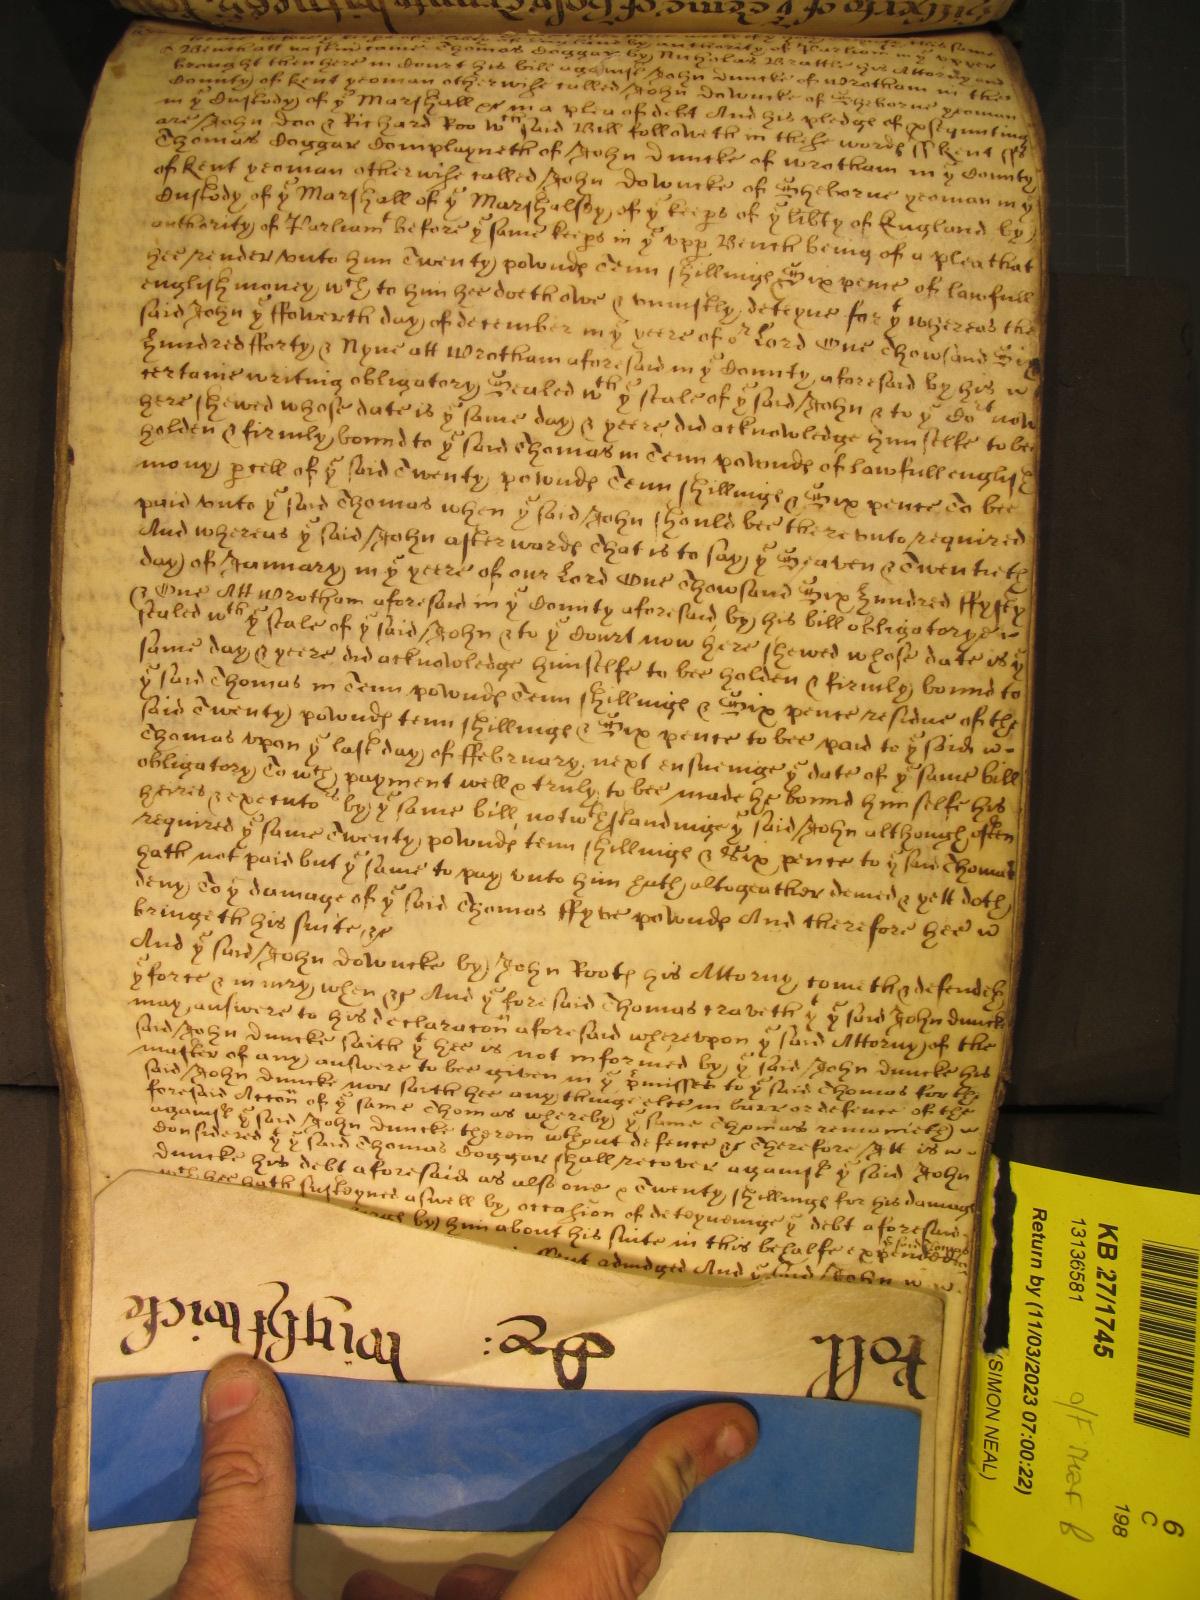 Bench att westm came Thomas Doggar by Nicholas Brattle his Attorny and
brought then here in Court his bill against John Duncke of Wrotham in the
County of Kent yeoman otherwise called John Downcke of Sheborne yeoman
in yͤ Custody of yͤ Marshall &c in a plea of debt And his pledge of p̱sequuting
are John Doo & Richard Roo wᶜʰ said Bill followeth in these words ss Kent ss
Thomas Doggar Complayneth of John Duncke of Wrotham in yͤ County
of Kent yeoman otherwise called John Downcke of Sheborne yeoman in yͤ
Custody of yͤ Marshall of yͤ Marshalsey of yͤ keeps of yͤ libty of England by
authority of Parliamᵗ before yͤ same keeps in yͤ vpp Bench being of a plea that
hee render vnto him Twenty pownds Tenn shillings & Six pence of lawfull
english money wᶜʰ to him hee doeth owe & vniustly deteyne for yᵗ whereas the
said John yͤ ffowerth day of december in yͤ yeere of oʳ Lord One Thowsand Six
hundred fforty & Nyne att Wrotham aforesaid in yͤ County aforesaid by his w
certaine writing obligatory Sealed wᵗʰ yͤ seale of yͤ said John & to yͤ Coᵗ now
here shewed whose date is yͤ same day & yeere did acknowledge himselfe to bee
holden & firmly bound to yͤ said Thomas in Tenn pownds of lawfull english
mony p̱cell of yͤ said Twenty pownds Tenn shillings & Six pence To bee
paid vnto yͤ said Thomas when yͤ said John should bee therevnto required
And whereas yͤ said John afterwards That is to say yͤ Seaven & Twentieth
day of January in yͤ yeere of our Lord One Thowsand Six hundred ffyfty
& One Att Wrotham aforesaid in yͤ County aforesaid by his bill obligatorye
sealed wᵗʰ yͤ seale of yͤ said John & to yͤ Court now here shewed whose date is yͤ
same day & yeere did acknowledge himselfe to bee holden & firmly bound to
yͤ said Thomas in Tenn pownds Tenn shillings & Six pence residue of the
said Twenty pownds tenn shillings & Six pence to bee paid to yͤ said w
Thomas vpon yͤ last day of ffebruary next ensueinge yͤ date of yͤ same bill
obligatory To wᶜʰ payment well & truly to bee made he bound him selfe his
heires & executoʳˢ by yͤ same bill notwᵗʰstandinge yͤ said John although often
required yͤ same Twenty pownds tenn shillings & Six pence to yͤ said Thomas
hath not paid but yͤ same to pay vnto him hath altogeather denied & yett doth
deny To yͤ damage of yͤ said Thomas ffyve pownds And therefore hee w
bringeth his suite &c
And yͤ said John Downcke by John Roots his Attorny cometh & defendeth
yͤ force & iniury when &c And yͤ foresaid Thomas craveth yᵗ yͤ said John duncke
may answere to his declaracon aforesaid wherevpon yͤ said Attorny of the
said John Duncke saith yᵗ hee is not informed by yͤ said John Duncke his
master of any answere to bee given in yͤ p̄misses to yͤ said Thomas for the
said John Duncke nor saith hee any thinge else in barr or defence of the
foresaid Accon of yͤ same Thomas whereby yͤ same Thomas remaineth w
against yͤ said John Duncke therein wᵗʰout defence &c Therefore Itt is w
Considered yᵗ yͤ said Thomas Doggar shall recover against yͤ said John
Duncke his debt aforesaid as also one & Twenty shillings for his damage
wᶜʰ hee hath susteyned aswell by occasion of deteyneinge yͤ debt aforesaid
by him about his suite in this behalfe expended
adiudged And yͤ said John w
Roll
wightwick
KB 27/1745
13136581
Return by (11/03/2023 07:00:22)
(SIMON NEAL)
6
C
198